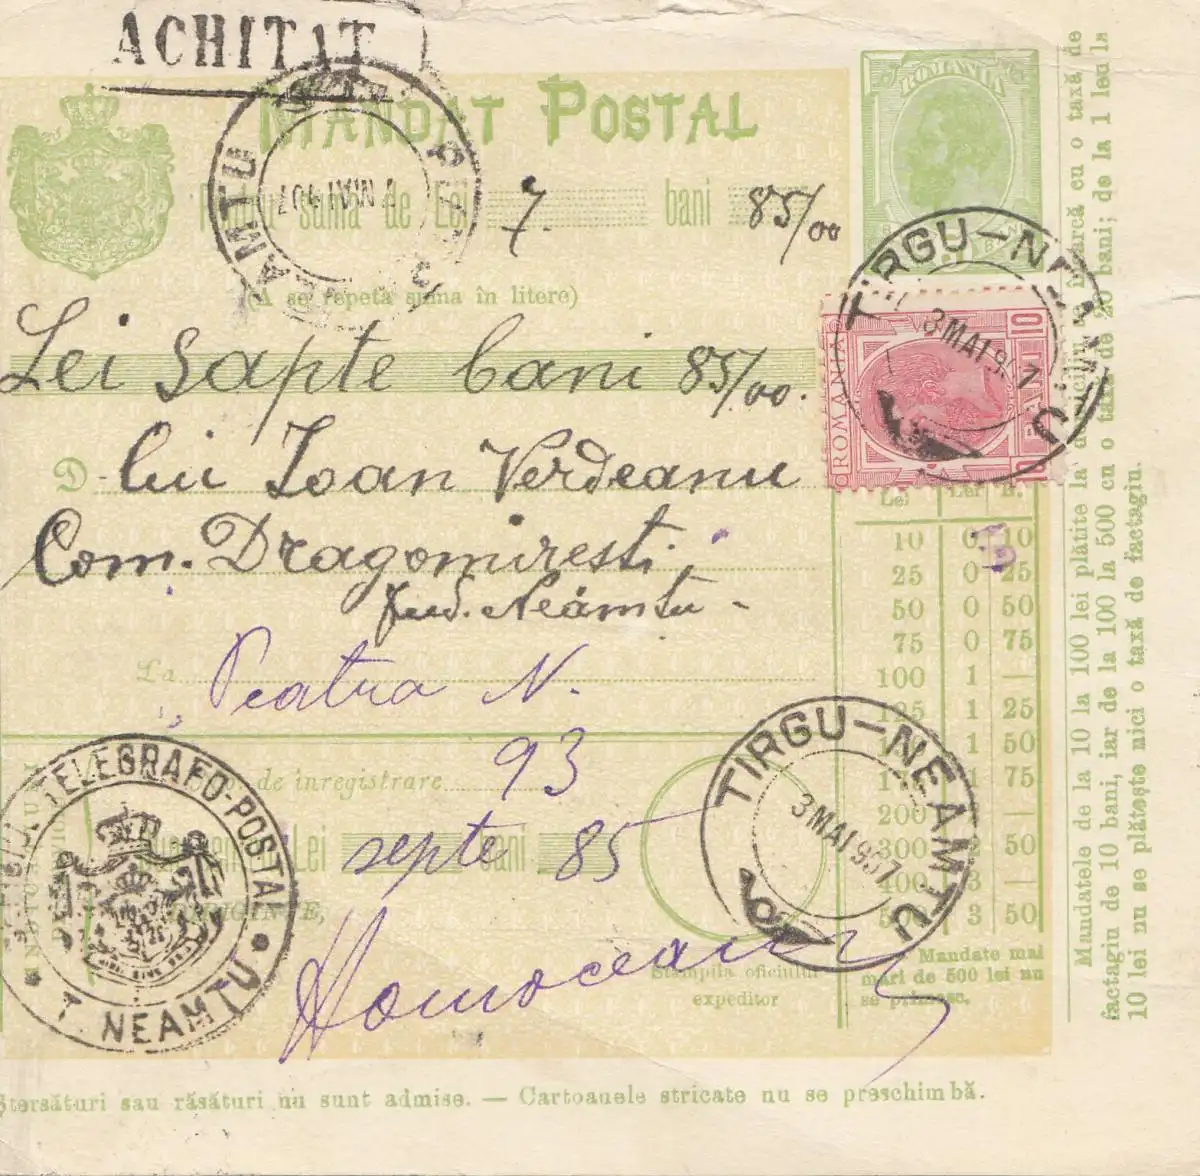 ACHITAT
MANDAT POSTAL
ROMANIA
Pentru suma de Lei 7 bani 85/00
(A se repeta suma în litere)
Lei șapte bani 85/00.
D. lui Ioan Verdeanu
Com. Dragomiresti,
Jud. Neamtu -
La Peatra N.
93
de înregistrare
Lei septe bani 85
Homoceanu
NEAMTU
7 MAI 907
TIRGU-NEAMTU
3 MAI 907
ROMANIA
10 BANI 10
TIRGU-NEAMTU
3 MAI 907
TELEGRAFO-POSTAL
T. NEAMTU
Stampila oficiului
expeditor
Lei Lei B.
10 0 10
25 0 25
50 0 50
75 0 75
100 1 —
125 1 25
1 50
1 75
200
300 50
400 3 —
3 50
Mandate mai
mari de 500 lei nu
se primesc.
Mandatele de la 10 la 100 lei plătite la domiciliu se încarcă cu o taxă de
factagiu de 10 bani, iar de la 100 la 500 cu o taxă de 20 bani; de la 1 leu la
10 lei nu se plătește nici o taxă de factagiu.
Stersături sau răsături nu sunt admise. — Cartoanele stricate nu se preschimbă.